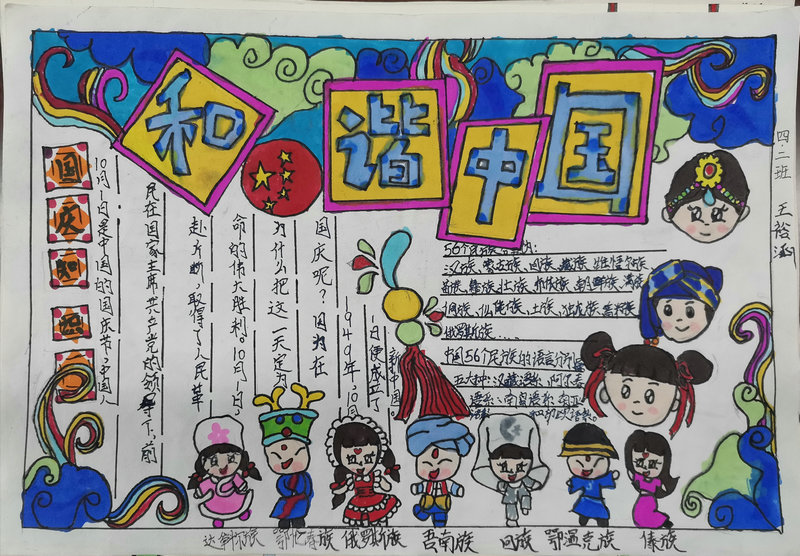 和谐中国
四.二班
国庆知识
10月1日是中国的国庆节,中国人
民在国家主席共产党的领导下,前
赴后断,取得了人民革
命的伟大胜利。10月1日,
为什么把这一天定为
国庆呢?因为在
1949年.10月
1日便成立了
新中国
56个民族
汉族、蒙古族、回族、藏族、维吾尔族
苗族、彝族、壮族、布依族、朝鲜族、满族
侗族、仫佬族、土族、
俄罗斯族......
中国56个民族的语言
五大种:汉藏语系、阿尔泰
语系、南岛语系、南亚
达斡尔族 鄂伦春族 俄罗斯族 回族 鄂温克族 傣族